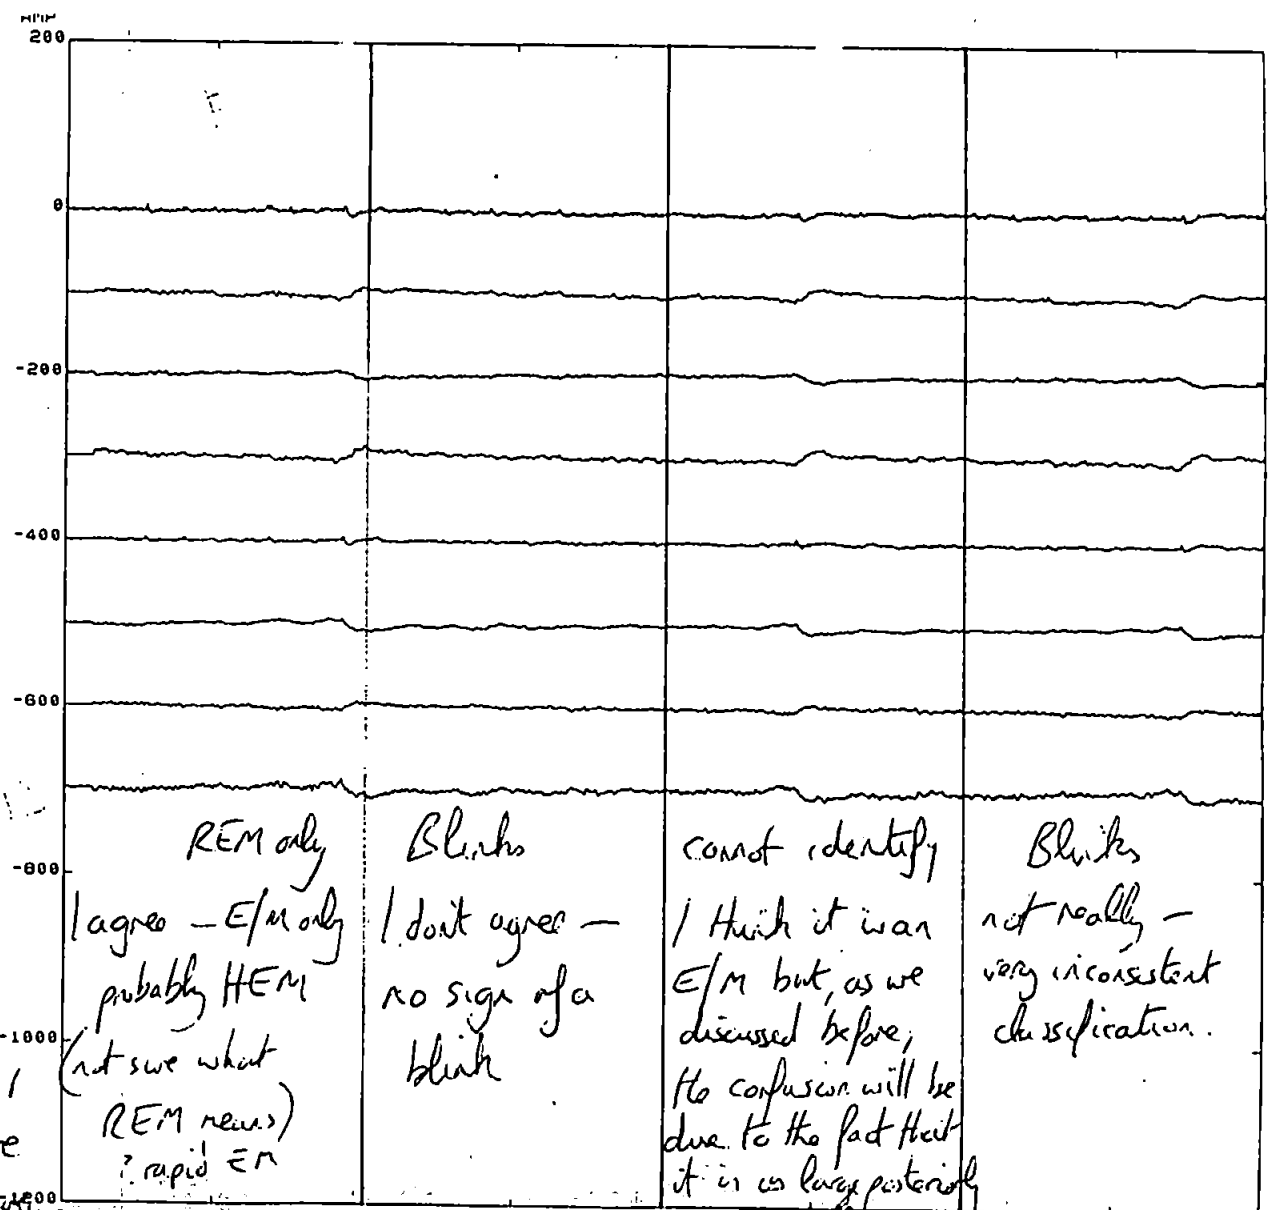 200
0
-200
-400
-600
-800
-1000
-1200
REM only
I agree — E/M only
probably HEM
(not sure what
REM means)
? rapid EM
Blinks
I don't agree —
no sign of a
blink
cannot identify
I think it is an
E/M but, as we
discussed before,
the confusion will be
due to the fact that
it is as large posteriorly
Blinks
not really —
very inconsistent
classification.